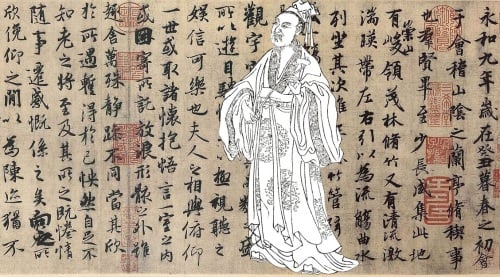 永和九年歲在癸丑暮春之初會
于會稽山陰之蘭亭脩稧事
也群賢畢至少長咸集此地
有崇山峻領茂林脩竹又有清流激
湍暎帶左右引以為流觴曲水
列坐其次竹管
觀宇盛
所以遊目極視聽之
娛信可樂也夫人之相與俯仰
一世或取諸懷抱悟言一室之內
或因寄所託放浪形骸之外雖
趣舍萬殊靜躁不同當其欣
於所遇蹔得於己怏然自足不
知老之將至及其所之既惓情
隨事遷感慨係之矣向之所
欣俛仰之閒以為陳迹猶不